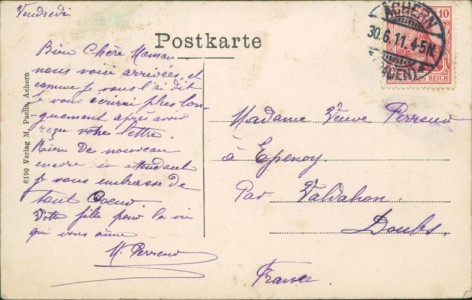 Vendredi
Postkarte
ACHERN
30.6.11.4-5N.
(BADEN)
10
REICH
Bien Chère Maman
nous voici arrivées, et
comme je vous l'ai dit
je vous écrirai plus lon-
guement après avoir
reçu votre lettre.
Rien de nouveau
encore en attendant
je vous embrasse de
tout Coeur.
Votre fille pour la vie
qui vous aime
M. Perreud
Madame Veuve Perreud
à Epenoy
Par Valdahon
Doubs
France
6190 Verlag M. Achern